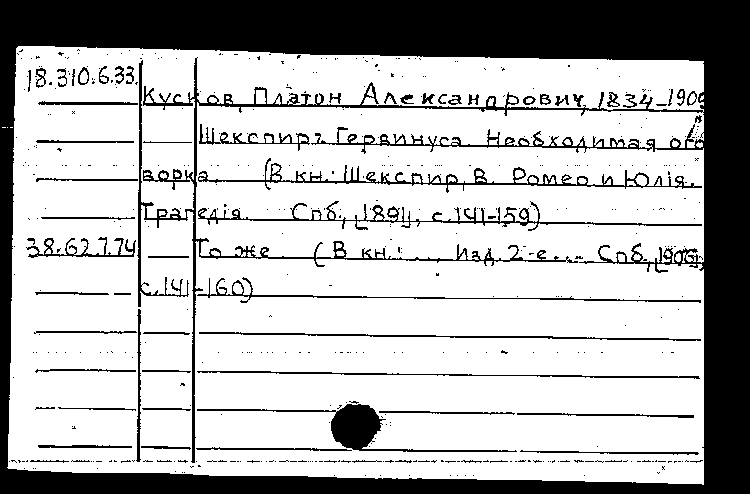 18.310.6.33.
Кусков, Платон Александрович, 1834-1909
Шекспиръ Гервинуса. Необходимая ого
ворка. (В кн.: Шекспир, В. Ромео и Юлія.
Трагедія. Спб., [1891], с.141-159)
38.62.7.74 То же. (В кн.: ... Изд. 2-е... Спб.,
с.141-160)